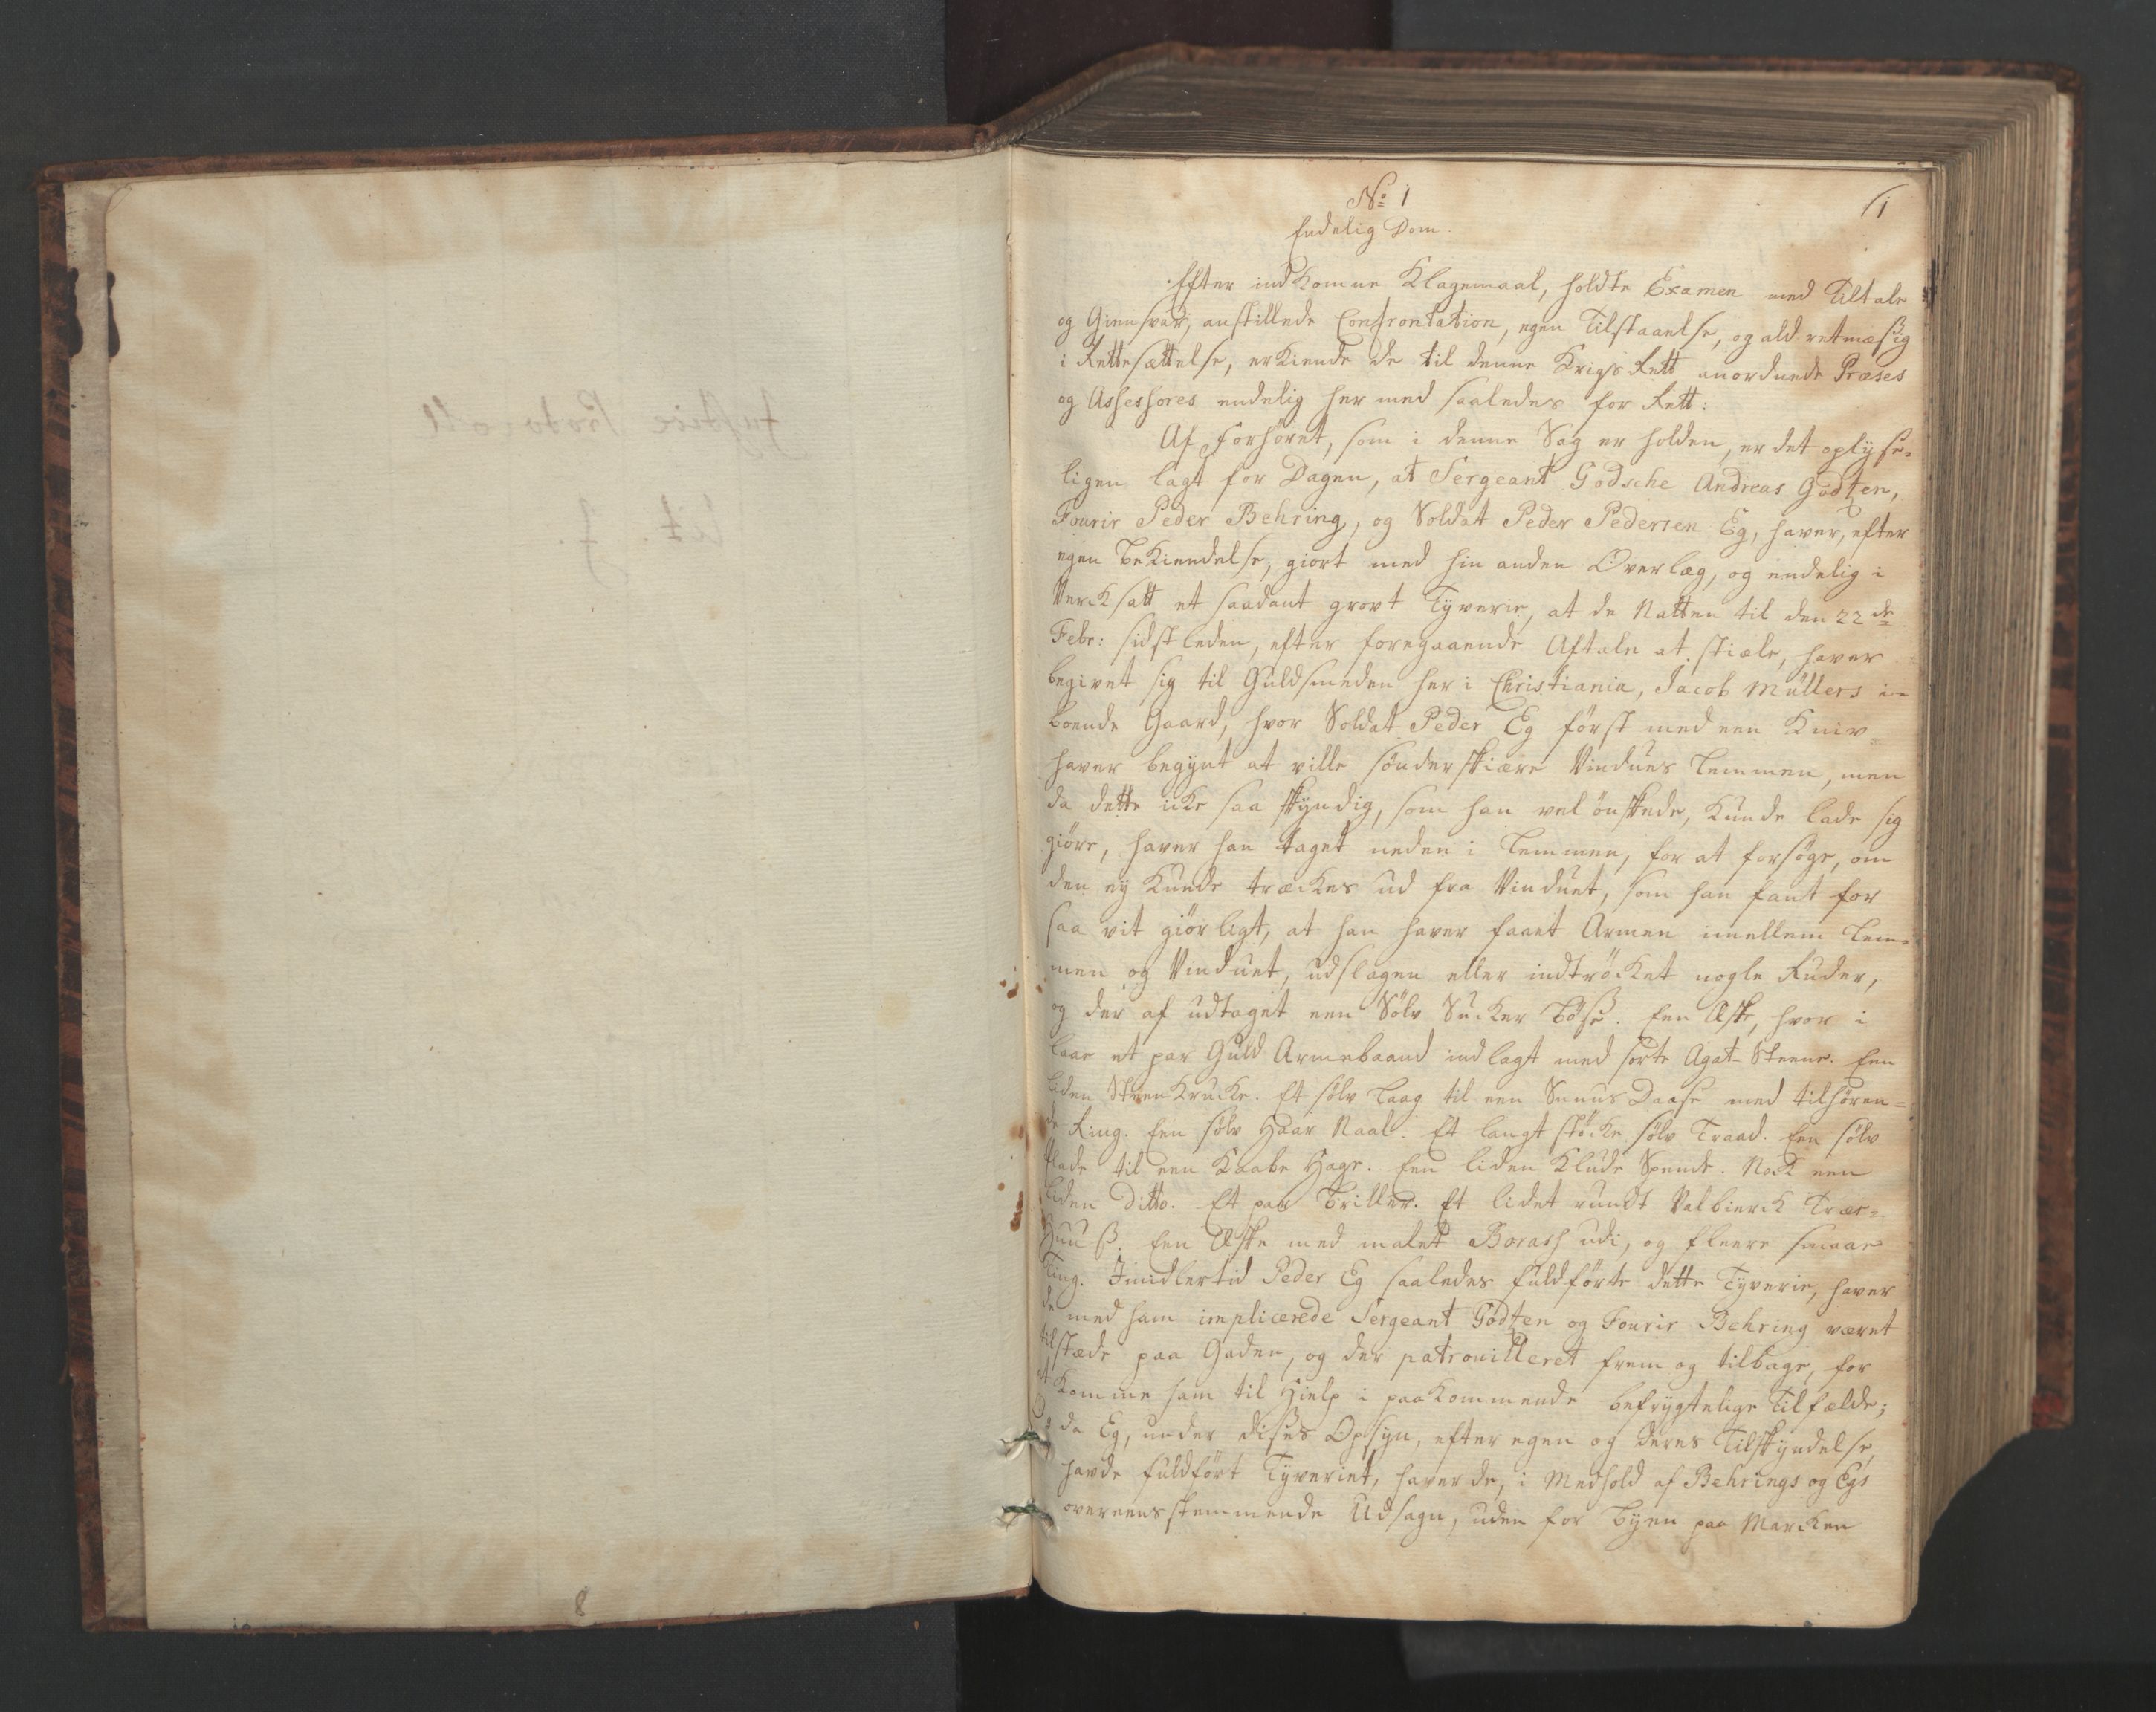 8
No 1
1
Endelig Dom.
Efter indkomne Klagemaal, holdte Examen med Tiltale
og Giensvar, anstillede Confrontation, egen Tilstaaelse, og ald retmæssig
i Rettesættelse, erkiende de til denne Krigs Rett anordnede Præses
og Assessores endelig her med saaledes for Rett:
Af Forhöret, som i denne Sag er holden, er det oplyse=
ligen lagt for Dagen, at Sergeant Godsche Andreas Godtzen,
Fourir Peder Behring, og Soldat Peder Pedersen Eg, haver, efter
egen bekiendelse, giort med hin anden Overlæg, og endelig i
Vercksatt et saadant grovt Tyverie, at de Natten til den 22de
Febr: sidstleden, efter foregaaende Aftale at stiæle, haver
begivet sig til Guldsmeden her i Christiania, Jacob Müllers i=
boende Gaard, hvor Soldat Peder Eg först med een Kniv
haver begynt at ville sönderskiære Vindues Lemmen, men
da dette icke saa skyndig, som han vel önskede, kunde lade sig
giöre, haver han taget neden i Lemmen, for at forsöge, om
den ey kunde træckes ud fra Vinduet, som han fant for
saa vit giörligt, at han haver faaet Armen imellem Lem=
men og Vinduet, udslagen eller indtröcket nogle Ruder,
og der af udtaget een Sölv Sucker bösse. Een Æske, hvor i
laae et par Guld Armebaand indlagt med sorte Agat-Steene. Een
liden Steen Krucke. Et sölv Laag til een Snuus Daase med tilhören=
de Ring. Een sölv Haar Naal. Et langt stöcke sölv Traad. Een sölv
Plade til een Kaabe Hage. Een liden Klude Spende. Nock een
liden ditto. Et par Briller. Et lidet rundt Valbierck Træe=
Huuß. Een Æske med malet Borass udi, og fleere smaae
Ting. Imidlertid Peder Eg saaledes fuldförte dette Tyverie, haver
de med ham implicerede Sergeant Godtzen og Fourir Behring været
tilstæde paa Gaden, og der patrouilleret frem og tilbage, for
at komme ham til Hielp i paakommende befrygtelige Tilfælde;
Og da Eg, under disses Opsyn, efter egen og deres Tilskyndelse,
havde fuldfört Tyveriet, haver de, i Medhold af Behrings og Egs
overeensstemmende Udsagn, uden for Byen paa Marcken